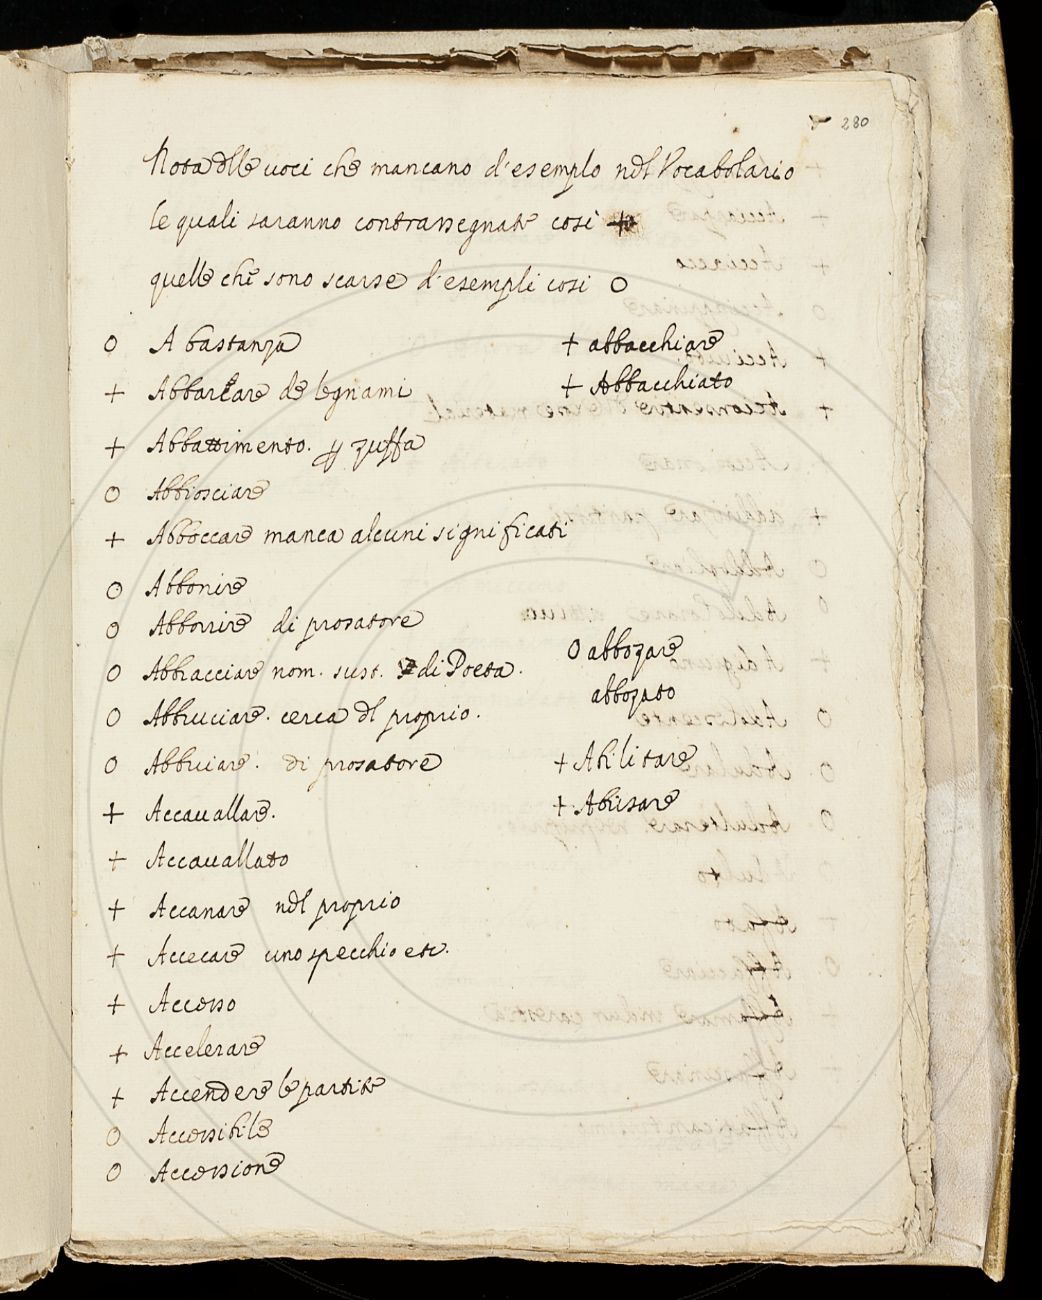 280
Nota dlle uoci che mancano d'esemplo nel Vocabolario
le quali saranno contrassegnate così +
quelle che sono scarse d'esempli così O
O A bastanza
+ abbacchiare
+ Abbarcare de legnami
+ Abbacchiato
+ Abbattimento. p zuffa
O Abbiosciare
+ Abboccare manca alcuni significati
O Abbonire
O Abborrire di prosatore
O abbozare
O Abbracciare nom. sust. di Poeta.
abbozato
O Abbruciare. cerca dl proprio.
O Abbuiare. di prosatore
+ Abilitare
+ Accauallare.
+ Abusare
+ Accauallato
+ Accanare nel proprio
+ Accecare uno specchio etc.
+ Accesso
+ Accelerare
+ Accendere le partite
O Accessibile
O Accessione